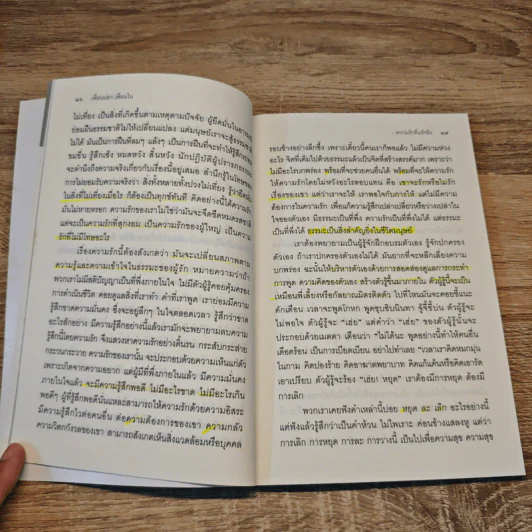 ๑๖ เพื่อนนอก เพื่อนใน
ไม่เที่ยง เป็นสิ่งที่เกิดขึ้นตามเหตุตามปัจจัย ผู้ยึดมั่นใน
ย่อมฝืนธรรมชาติไม่ให้เปลี่ยนแปลง แต่มนุษย์เราจะสู้ธรรม
ได้หรือ เป็นการฝืนที่ลมๆ แล้งๆ เป็นการฝืนที่จะทำให้รู้สึก
ขมขื่น รู้สึกเซ็ง หมดหวัง สิ้นหวัง นักปฏิบัติผู้ปรารถนา
จะคำนึงถึงความจริงเกี่ยวกับเรื่องนี้อยู่เสมอ สำนึกในการ
การไม่ยอมรับความจริงว่า สิ่งทั้งหลายทั้งปวงไม่เที่ยง
ในสิ่งที่ไม่เที่ยงเมื่อไร ก็ต้องเป็นทุกข์ทันที คิดอย่างนี้ได้ความ
มันไม่หายหรอก ความรักของเราไม่ใช่ว่ามันจะจืดชืดหมดรส
จะเป็นความรักที่สุกงอม เป็นความรักของผู้ใหญ่ เป็นความ
รักที่มีโทษอะไร
เรื่องความรักนี้ต้องสังเกตว่า มันจะเปลี่ยนสภาพตาม
ความรู้และความเข้าใจในธรรมะของผู้รัก หมายความว่าถ้า
พวกเราไม่มีสติปัญญาเป็นที่พึ่งภายในใจ ไม่มีตัวผู้รู้คอยคุ้มครอง
การดำเนินชีวิต คอยดูแลสิ่งที่เราทำ คำที่เราพูด เราย่อมมีความ
รู้สึกขาดความมั่นคง ซึ่งจะอยู่ลึกๆ ในใจตลอดเวลา รู้สึกว่าขาด
อะไรสักอย่าง มีความรู้สึกอย่างนี้แล้วเรามักจะพยายามลบความ
รู้สึกนี้โดยความรัก จึงแสวงหาความรักอย่างดิ้นรน กระสับกระส่าย
กระวนกระวาย ความรักของเรานั้น จะประกอบด้วยความเห็นแก่ตัว
เพราะเกิดจากความอยาก แต่ผู้มีที่พึ่งภายในแล้ว มีความมั่นคง
ภายในใจแล้ว จะมีความรู้สึกพอดี ไม่มีอะไรขาด ไม่มีอะไรเกิน
พอดีๆ ผู้ที่รู้สึกพอดีนั่นแหละสามารถให้ความรักด้วยความอิสระ
มีความรู้สึกไวต่อคนอื่น ต่อความต้องการของเขา ความกลัว
ความวิตกกังวลของเขา สามารถสังเกตเห็นสิ่งแวดล้อมหรือบุคคล
ความรักที่แท้จริง ๑๗
รอบข้างอย่างลึกซึ้ง เพราะเดี๋ยวนี้คนเราก็พอแล้ว ไม่มีความห่วง
อะไร จิตที่เต็มไปด้วยธรรมะแล้วเป็นจิตที่สร้างสรรค์มาก เพราะว่า
ไม่มีอะไรบกพร่อง พร้อมที่จะช่วยคนอื่นได้ พร้อมที่จะให้ความรัก
ให้ความรักโดยไม่หวังอะไรตอบแทน คือ เขาจะรักหรือไม่รัก
เรื่องของเขา แต่ว่าเราจะให้ เราพอใจกับการให้ แต่ไม่มีความ
ต้องการในความรัก เพื่อแก้ความรู้สึกเปล่าเปลี่ยวหรืออ้างว้างใน
ใจของตัวเอง มีธรรมะเป็นที่พึ่ง ความรักเป็นที่พึ่งไม่ได้ แต่ธรรมะ
เป็นที่พึ่งได้ ธรรมะเป็นสิ่งสำคัญยิ่งในชีวิตมนุษย์
เราต้องพยายามเป็นผู้รู้จักฝึกอบรมตัวเอง รู้จักปกครอง
ตัวเอง ถ้าเราปกครองตัวเองไม่ได้ มันยากที่จะหลีกเลี่ยงความ
บกพร่อง ฉะนั้นให้บริหารตัวเองด้วยการสอดส่องดูแลการกระทำ
การพูด ความคิดของตัวเอง สร้างตัวรู้ขึ้นมาภายใน ตัวผู้รู้นี้จะเป็น
เหมือนพี่เลี้ยงหรือกัลยาณมิตรติดตัว ไปที่ไหนมันจะคอยชี้แนะ
ตักเตือน เวลาจะพูดโกหก พูดซุบซิบนินทา จู้จี้ขี้บ่น ตัวผู้รู้จะ
ไม่พอใจ ตัวผู้รู้จะ "เฮ้ย" แต่คำว่า "เฮ้ย" ของตัวผู้รู้นั้นจะ
ประกอบด้วยเมตตา เตือนว่า "ไม่ได้นะ พูดอย่างนี้ทำให้คนอื่น
เดือดร้อน เป็นการเบียดเบียน อย่าไปทำเลย "เวลาเราคิดหมกมุ่น
ในกาม คิดปองร้าย คิดอาฆาตพยาบาท คิดแก้แค้นหรือคิดเอารัด
เอาเปรียบ ตัวผู้รู้จะร้อง "เฮ้ย! หยุด" เราต้องมีการหยุด ต้องมี
การเลิก
พวกเราเคยฟังคำเหล่านี้บ่อย หยุด ละ เลิก อะไรอย่างนี้
แต่ฟังแล้วรู้สึกว่าเป็นคำห้วน ไม่ไพเราะ ค่อนข้างแสลงหู แต่ว่า
การเลิก การหยุด การละ การวางนี้ เป็นไปเพื่อความสุข ความสุข